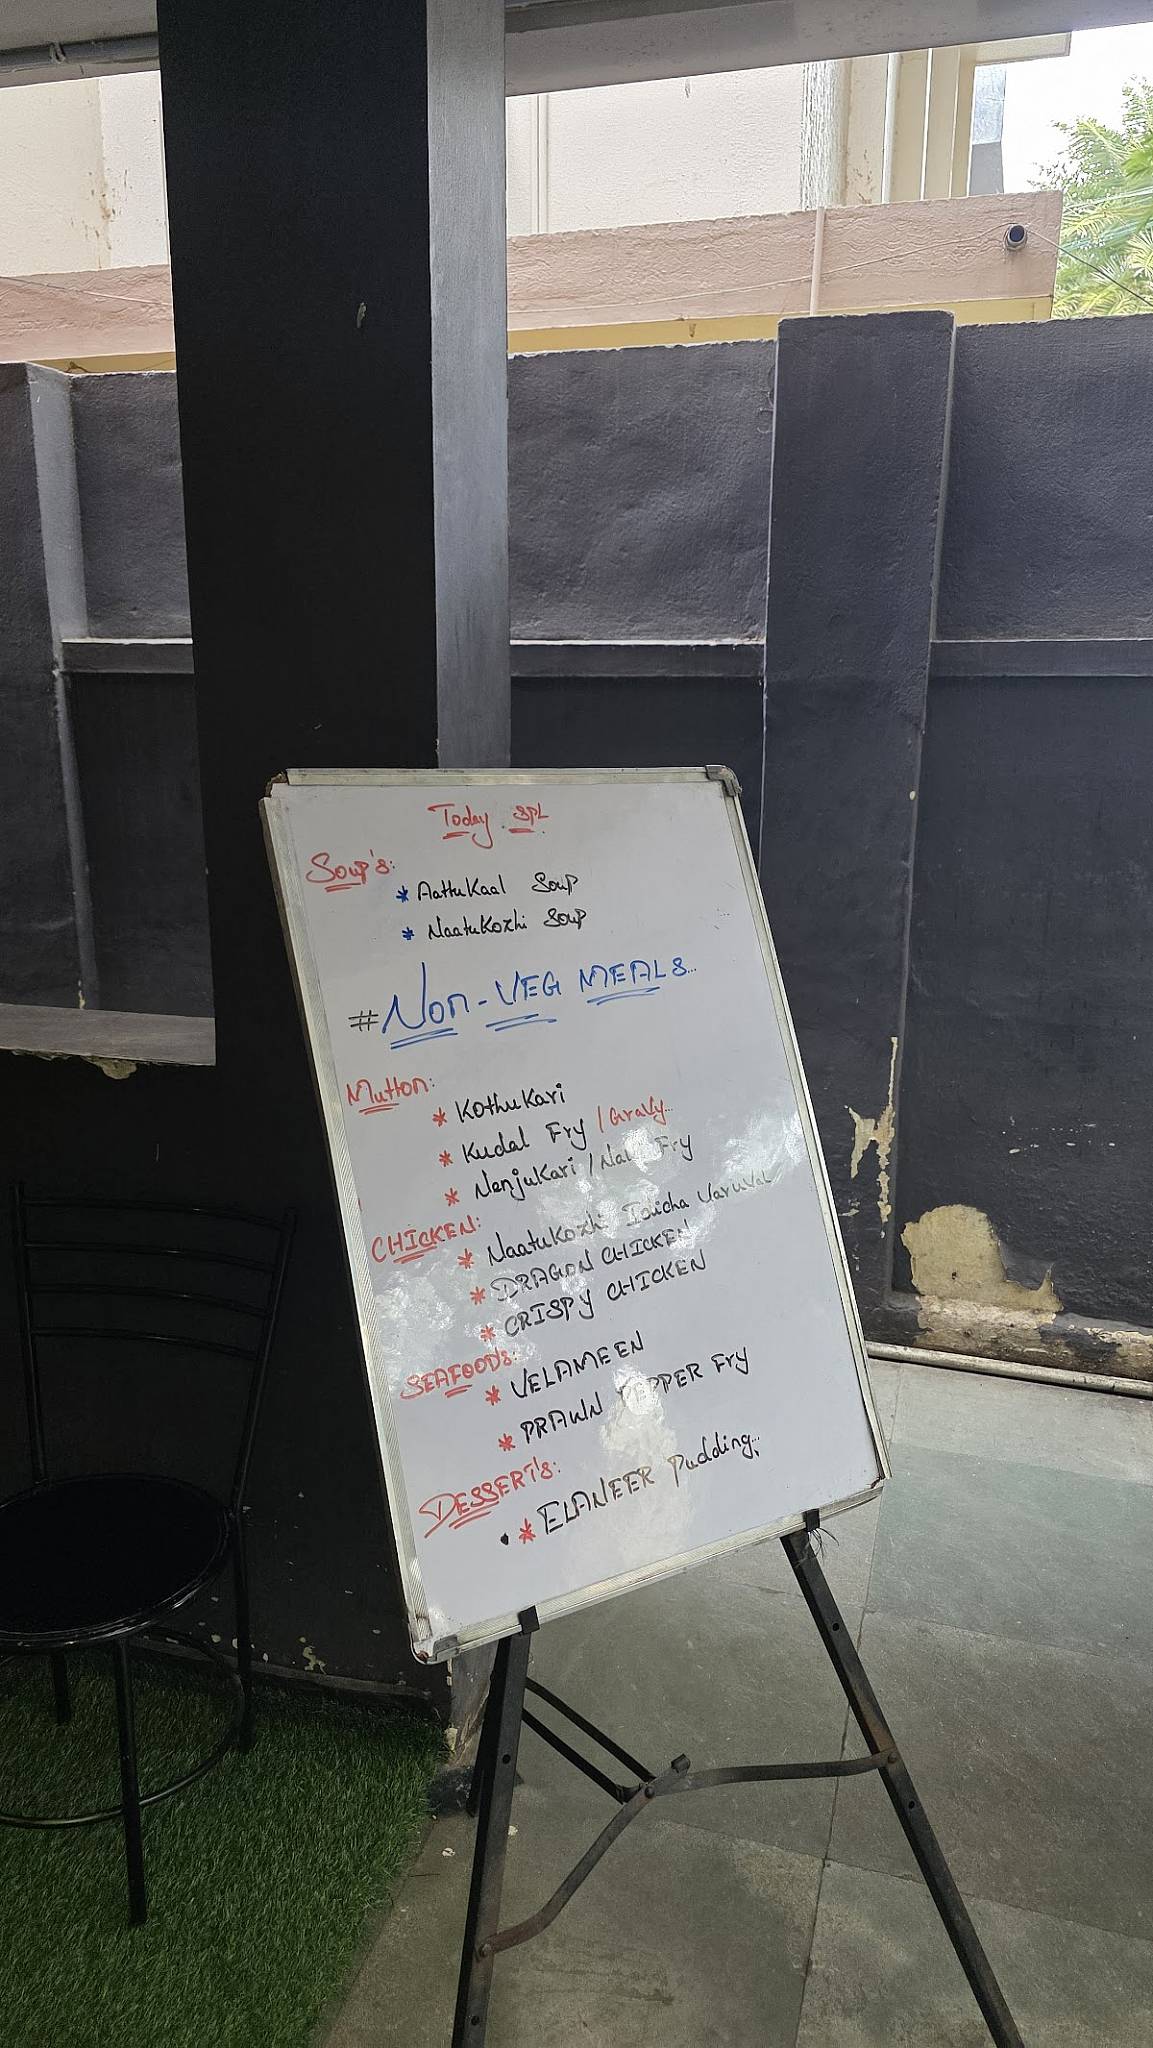 Today SPL
Soup's:
* Aattukaal Soup
* Naatukozhi Soup
# Non-VEG MEALS...
Mutton:
* Kothukari
* Kudal Fry / Gravy...
* Nenjukari / Fry
CHICKEN:
* Naatukozhi Idicha Varuval
* DRAGON CHICKEN
* CRISPY CHICKEN
SEAFOOD's:
* VELAMEEN
* PRAWN PEPPER Fry
DESSERT's:
* ELANEER Pudding...